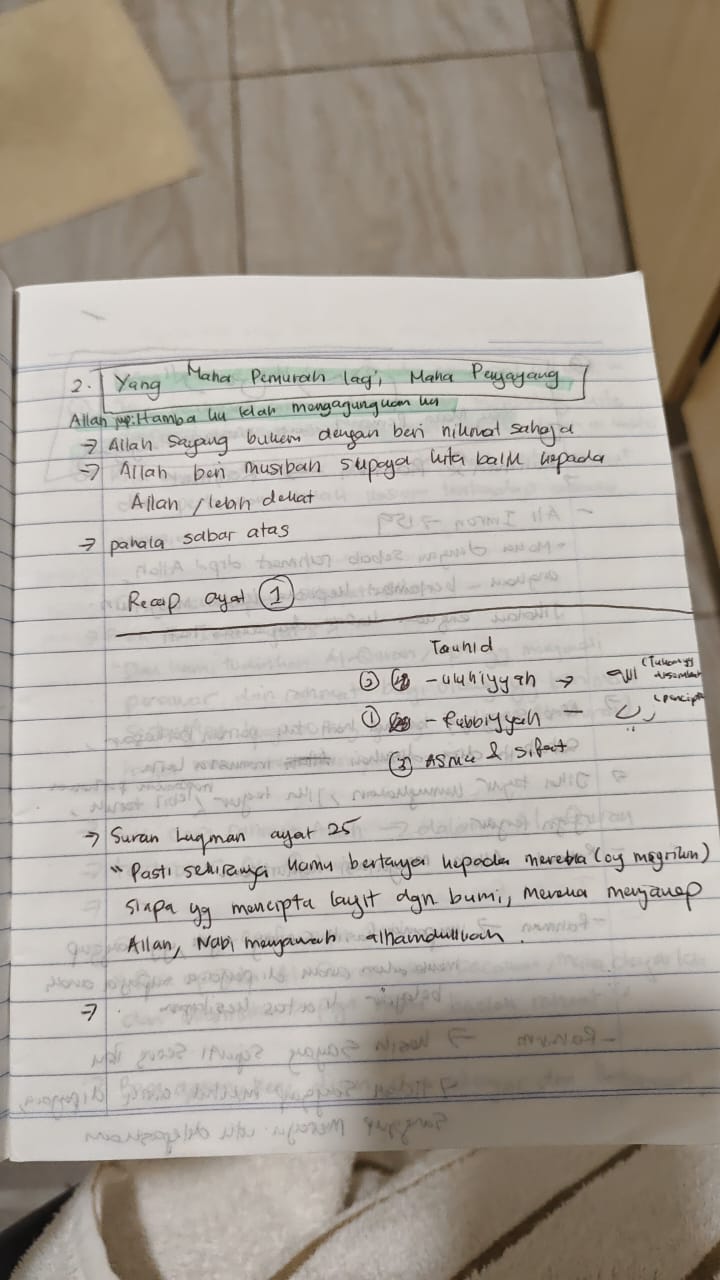 2. Yang Maha Pemurah lagi Maha Penyayang
Allah jwp: Hamba ku telah mengagungkan ku
→ Allah sayang bukan dengan beri nikmat sahaja
→ Allah beri musibah supaya kita balik kepada
Allah / lebih dekat
→ pahala sabar atas
Recap ayat 1
Tauhid
② - uluhiyyah → (Tuhan yg disembah)
① - Rubbiyyah - رب (pencipta
③ Asma & sifat
→ Surah Luqman ayat 25
" Pasti sekiranya kamu bertanya kepada mereka (og msyrikin)
siapa yg mencipta langit dgn bumi, mereka menjawab
Allah, Nabi menjawab alhamdulillah.
→